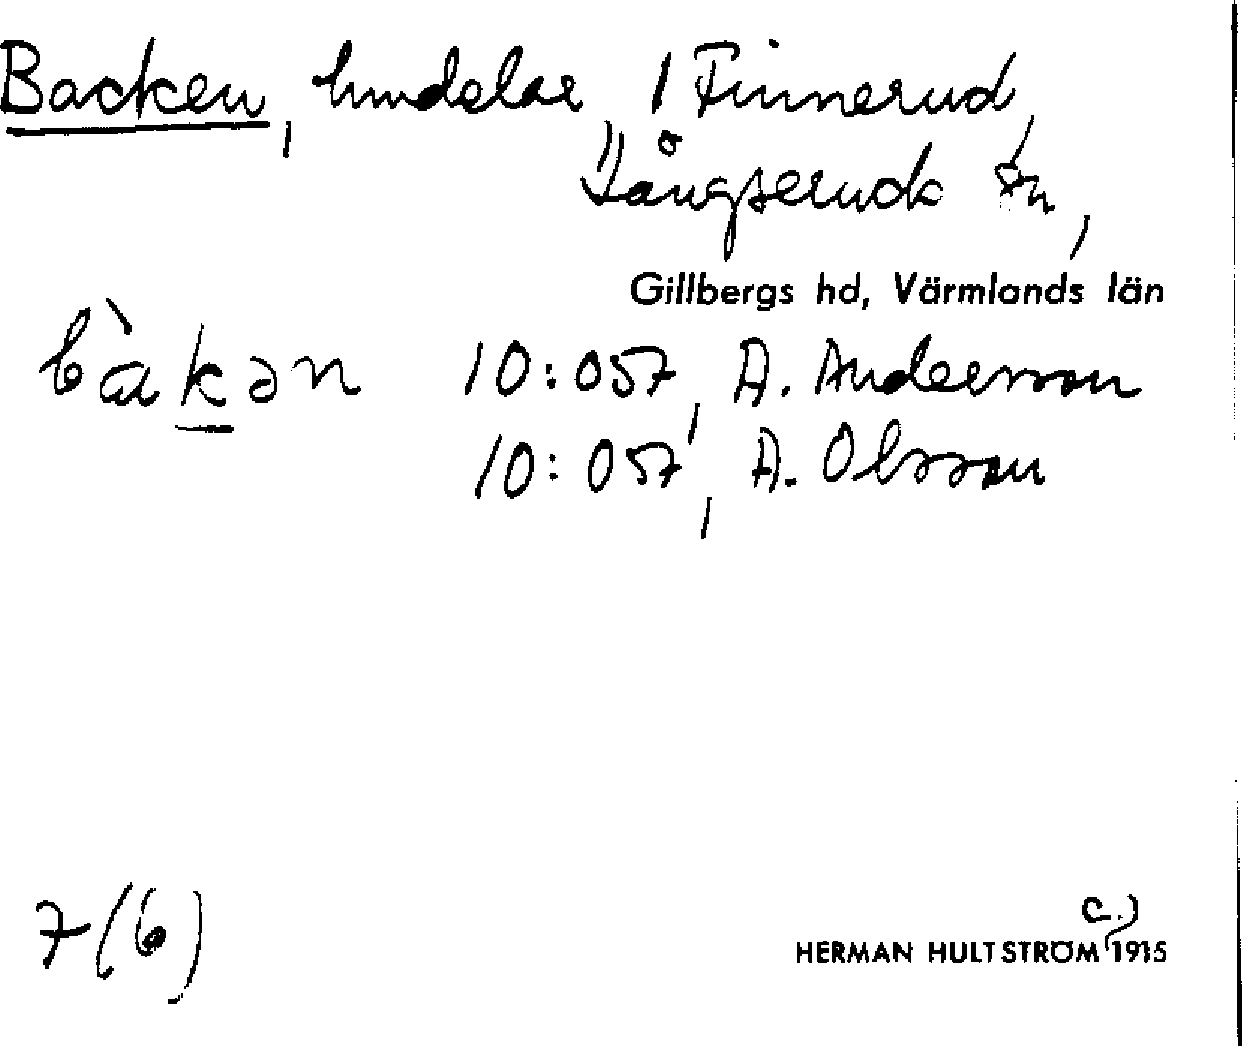 Backen, hmdelar, / Finnerud,
Långseruds sn,
Gillbergs hd, Värmlands län
bàkən 10:057, A. Andersson
10:057, A. Olsson
7(6)
c.)
HERMAN HULTSTRÖM 1915